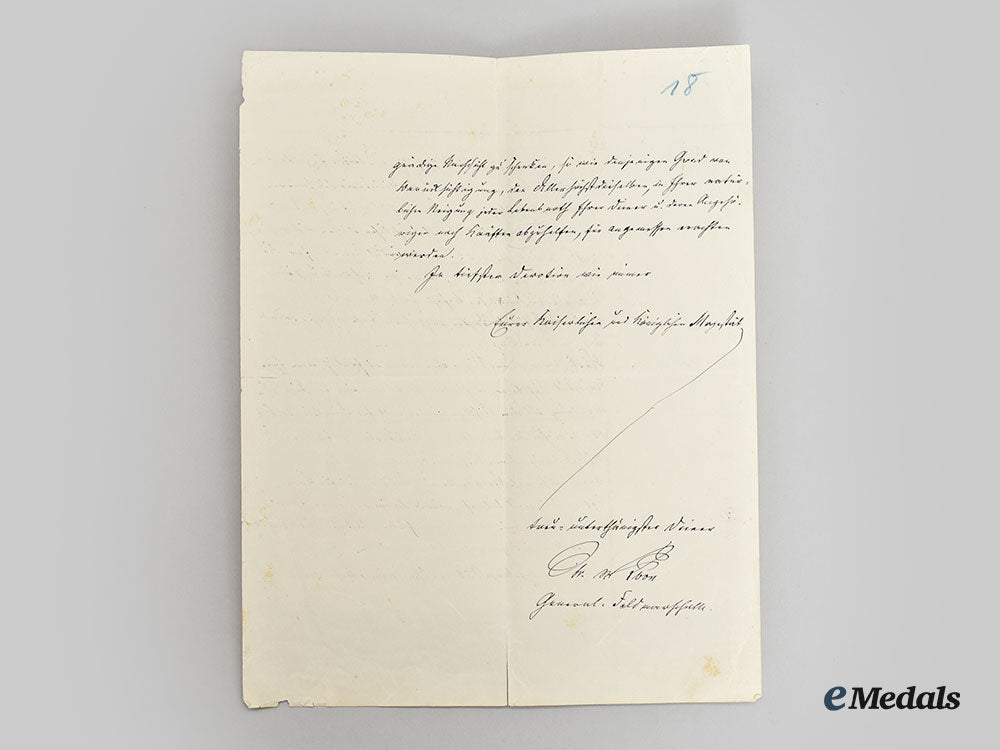 18
gnädige Nachsicht zu schenken, so wie denjenigen Grad von
Berücksichtigung, den Allerhöchstdieselben in Ihrer natür-
lichen Neigung jeder Lebensnoth Ihrer Diener u. deren Angehö-
riger nach Kräften abzuhelfen, für angemessen erachten
werden.
In tiefster Devotion wie immer
Eurer Kaiserlichen und Königlichen Majestät
treu-unterthänigster Diener
Gr. v Roon
General-Feldmarschall.
eMedals